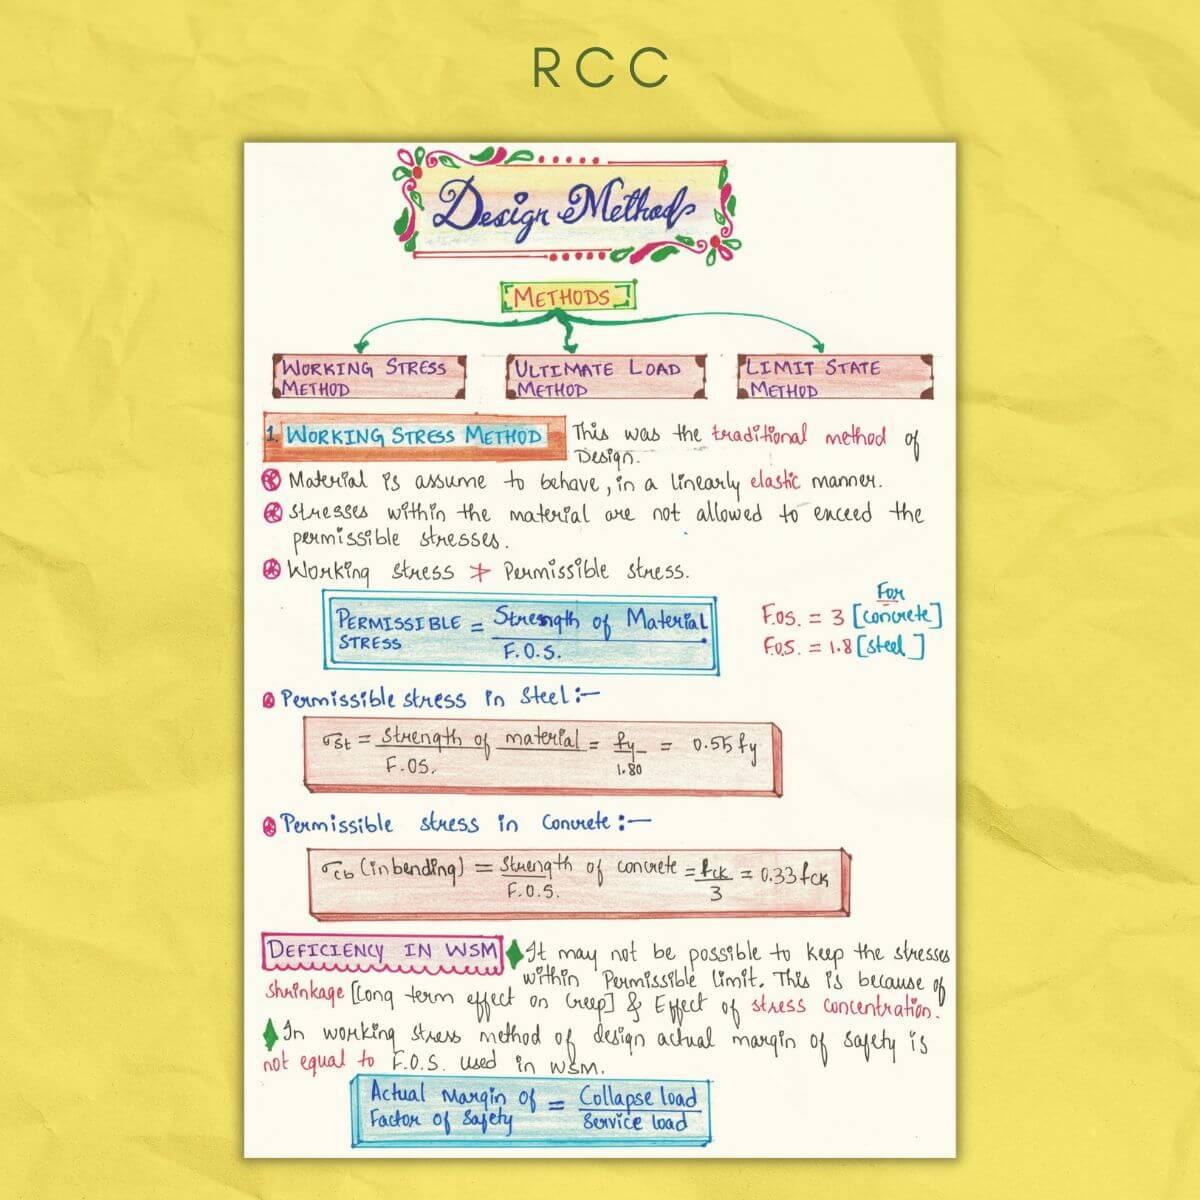 RCC
Design Methods
METHODS
WORKING STRESS METHOD
ULTIMATE LOAD METHOD
LIMIT STATE METHOD
1. WORKING STRESS METHOD This was the traditional method of
Design.
Material is assume to behave, in a linearly elastic manner.
Stresses within the material are not allowed to exceed the
permissible stresses.
Working stress ≯ Permissible stress.
PERMISSIBLE STRESS = Strength of Material / F.O.S.
For
F.OS. = 3 [concrete]
F.O.S. = 1.8 [steel]
Permissible stress in Steel:-
σst = Strength of material / F.OS. = fy / 1.80 = 0.55 fy
Permissible stress in Concrete:-
σcb (in bending) = Strength of concrete / F.O.S. = fck / 3 = 0.33 fck
DEFICIENCY IN WSM It may not be possible to keep the stresses
within Permissible limit. This is because of
shrinkage [Long term effect on Creep] & Effect of stress concentration.
In working stress method of design actual margin of safety is
not equal to F.O.S. used in WSM.
Actual Margin of Factor of Safety = Collapse load / Service load